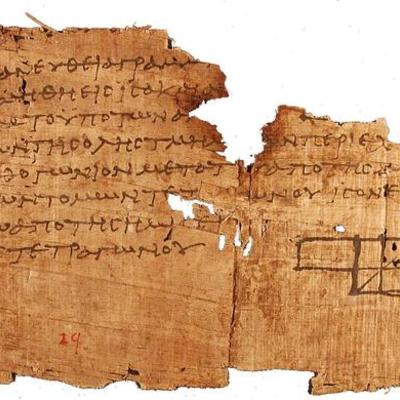 ΑΝΕΥΘΕΙΑΓΡΑΜΜ
ΜΗΘΗΕΙϹΙϹΑΚΑΙ
ΤΟΥΠΟΤΩΝΑ
ΩΝΤΗϹΟΛΗϹΤΜΗ ΝΠΕΡΙΕΧ
ΘΟΓΩΝΙΟΝΜΕΤΑΤ ΑΠΟΤΗϹ
ΩΝΤΟΜΩΝΤΕΤ ΩΝΟΥΙϹΟΝΕ
ΩΑΠΟΤΗϹΗΜΙ
ΤΕΤΡΑΓΩΝΟΥ
29